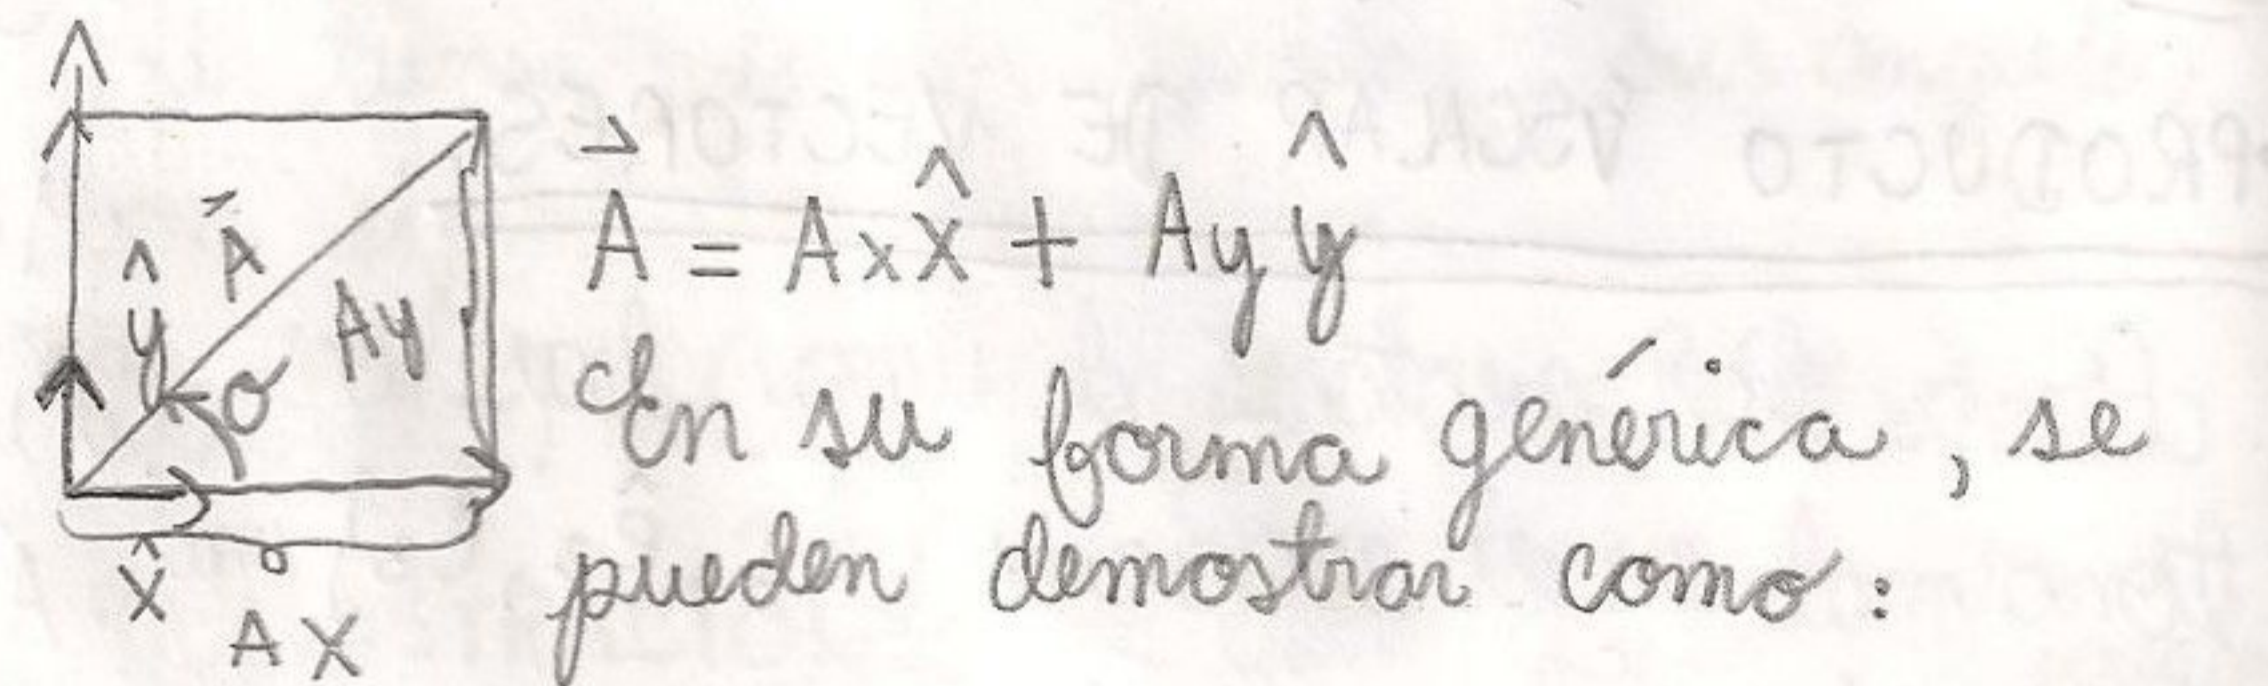 Â Ay
ŷ σ
x̂
AX
A⃗ = Axx̂ + Ayŷ
En su forma genérica, se
pueden demostrar como: